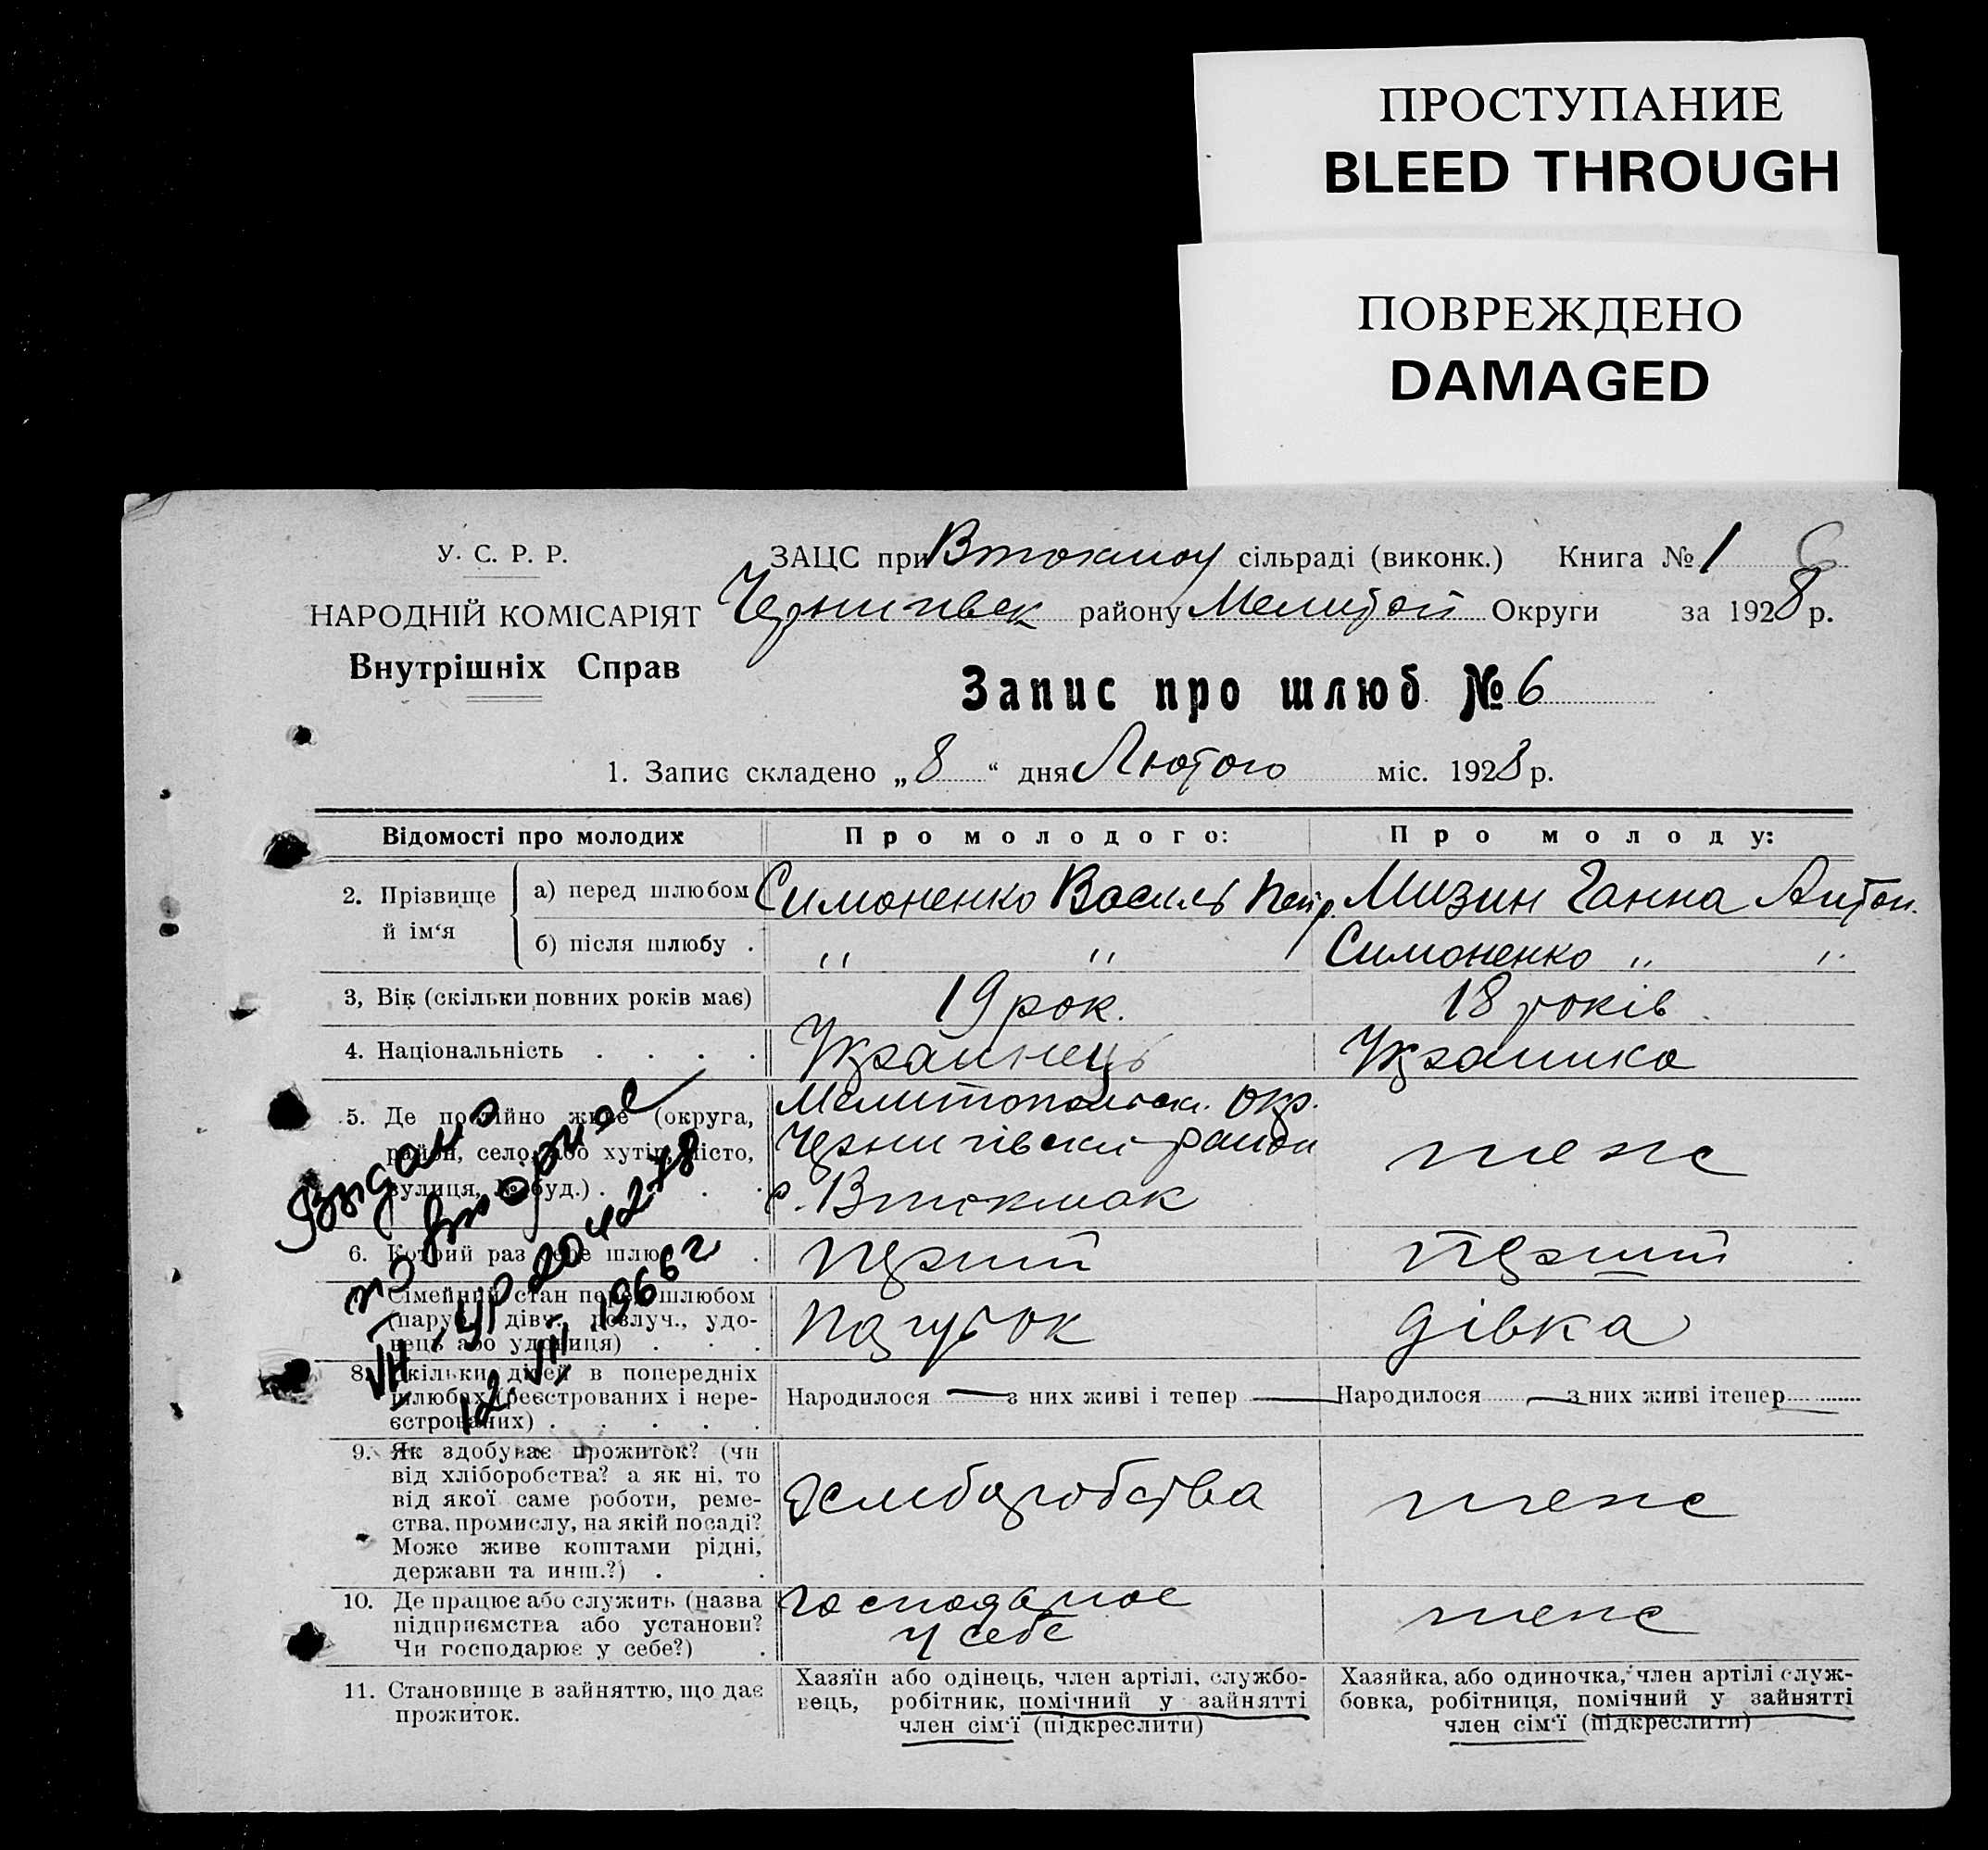 ПРОСТУПАНИЕ
BLEED THROUGH
ПОВРЕЖДЕНО
DAMAGED
У. С. Р. Р.
НАРОДНІЙ КОМІСАРІЯТ
Внутрішніх Справ
ЗАЦС при Втокмоу сільраді (виконк.) Книга № 1 6
Чернигівск району Мелитоп Округи за 1928 р.
Запис про шлюб № 6
1. Запис складено „8“ дня Лютого міс. 1928 р.
Відомості про молодих Про молодого: Про молоду:
2. Прізвище й ім‘я
а) перед шлюбом Симоненко Василь Петр. Мизин Ганна Антон.
б) після шлюбу . " " Симоненко " "
3, Вік (скільки повних років має) 19 рок. 18 років
4. Національність . . . . Українець Українка
5. Де постійно живе (округа,
район, село, або хутір, місто,
вулиця, № буд.) . . . .
Мелитопольськ. Окр.
Чернигівски район
с. Втокмак
теж
6. Котрий раз бере шлюб . Перший Перший
Сімейний стан перед шлюбом
(паруб., дівч., розлуч., удо-
вець або удовиця) . . .
Парубок дівка
8. Скільки дітей в попередніх
шлюбах (реєстрованих і нере-
єстрованих) . . . . .
Народилося — з них живі і тепер — Народилося — з них живі ітепер
9. Як здобуває прожиток? (чи
від хліборобства? а як ні, то
від якої саме роботи, реме-
ства, промислу, на якій посаді?
Може живе коштами рідні,
держави та инш.?) . .
Хлиборобства
10. Де працює або служить (назва
підприємства або установи?
Чи господарює у себе?) .
Господарює
у себе
11. Становище в зайняттю, що дає
прожиток.
Хазяїн або одінець, член артілі, службо-
вець, робітник, помічний у зайнятті
член сім‘ї (підкреслити)
Хазяйка, або одиночка, член артілі служ-
бовка, робітниця, помічний у зайнятті
член сім‘ї (підкреслити)
Видано
повторное
VII-УР 204278
12. VII 1966 г.